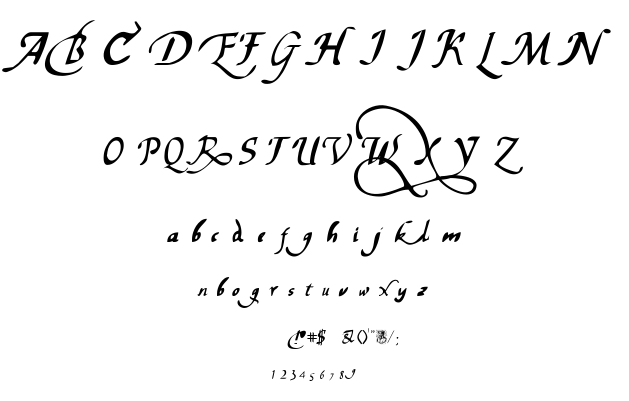 A B C D E F G H I J K L M N
O P Q R S T U V W X Y Z
a b c d e f g h i j k l m
n b o g r s t u v w x y z
#$ & () / ;
1 2 3 4 5 6 7 8 9